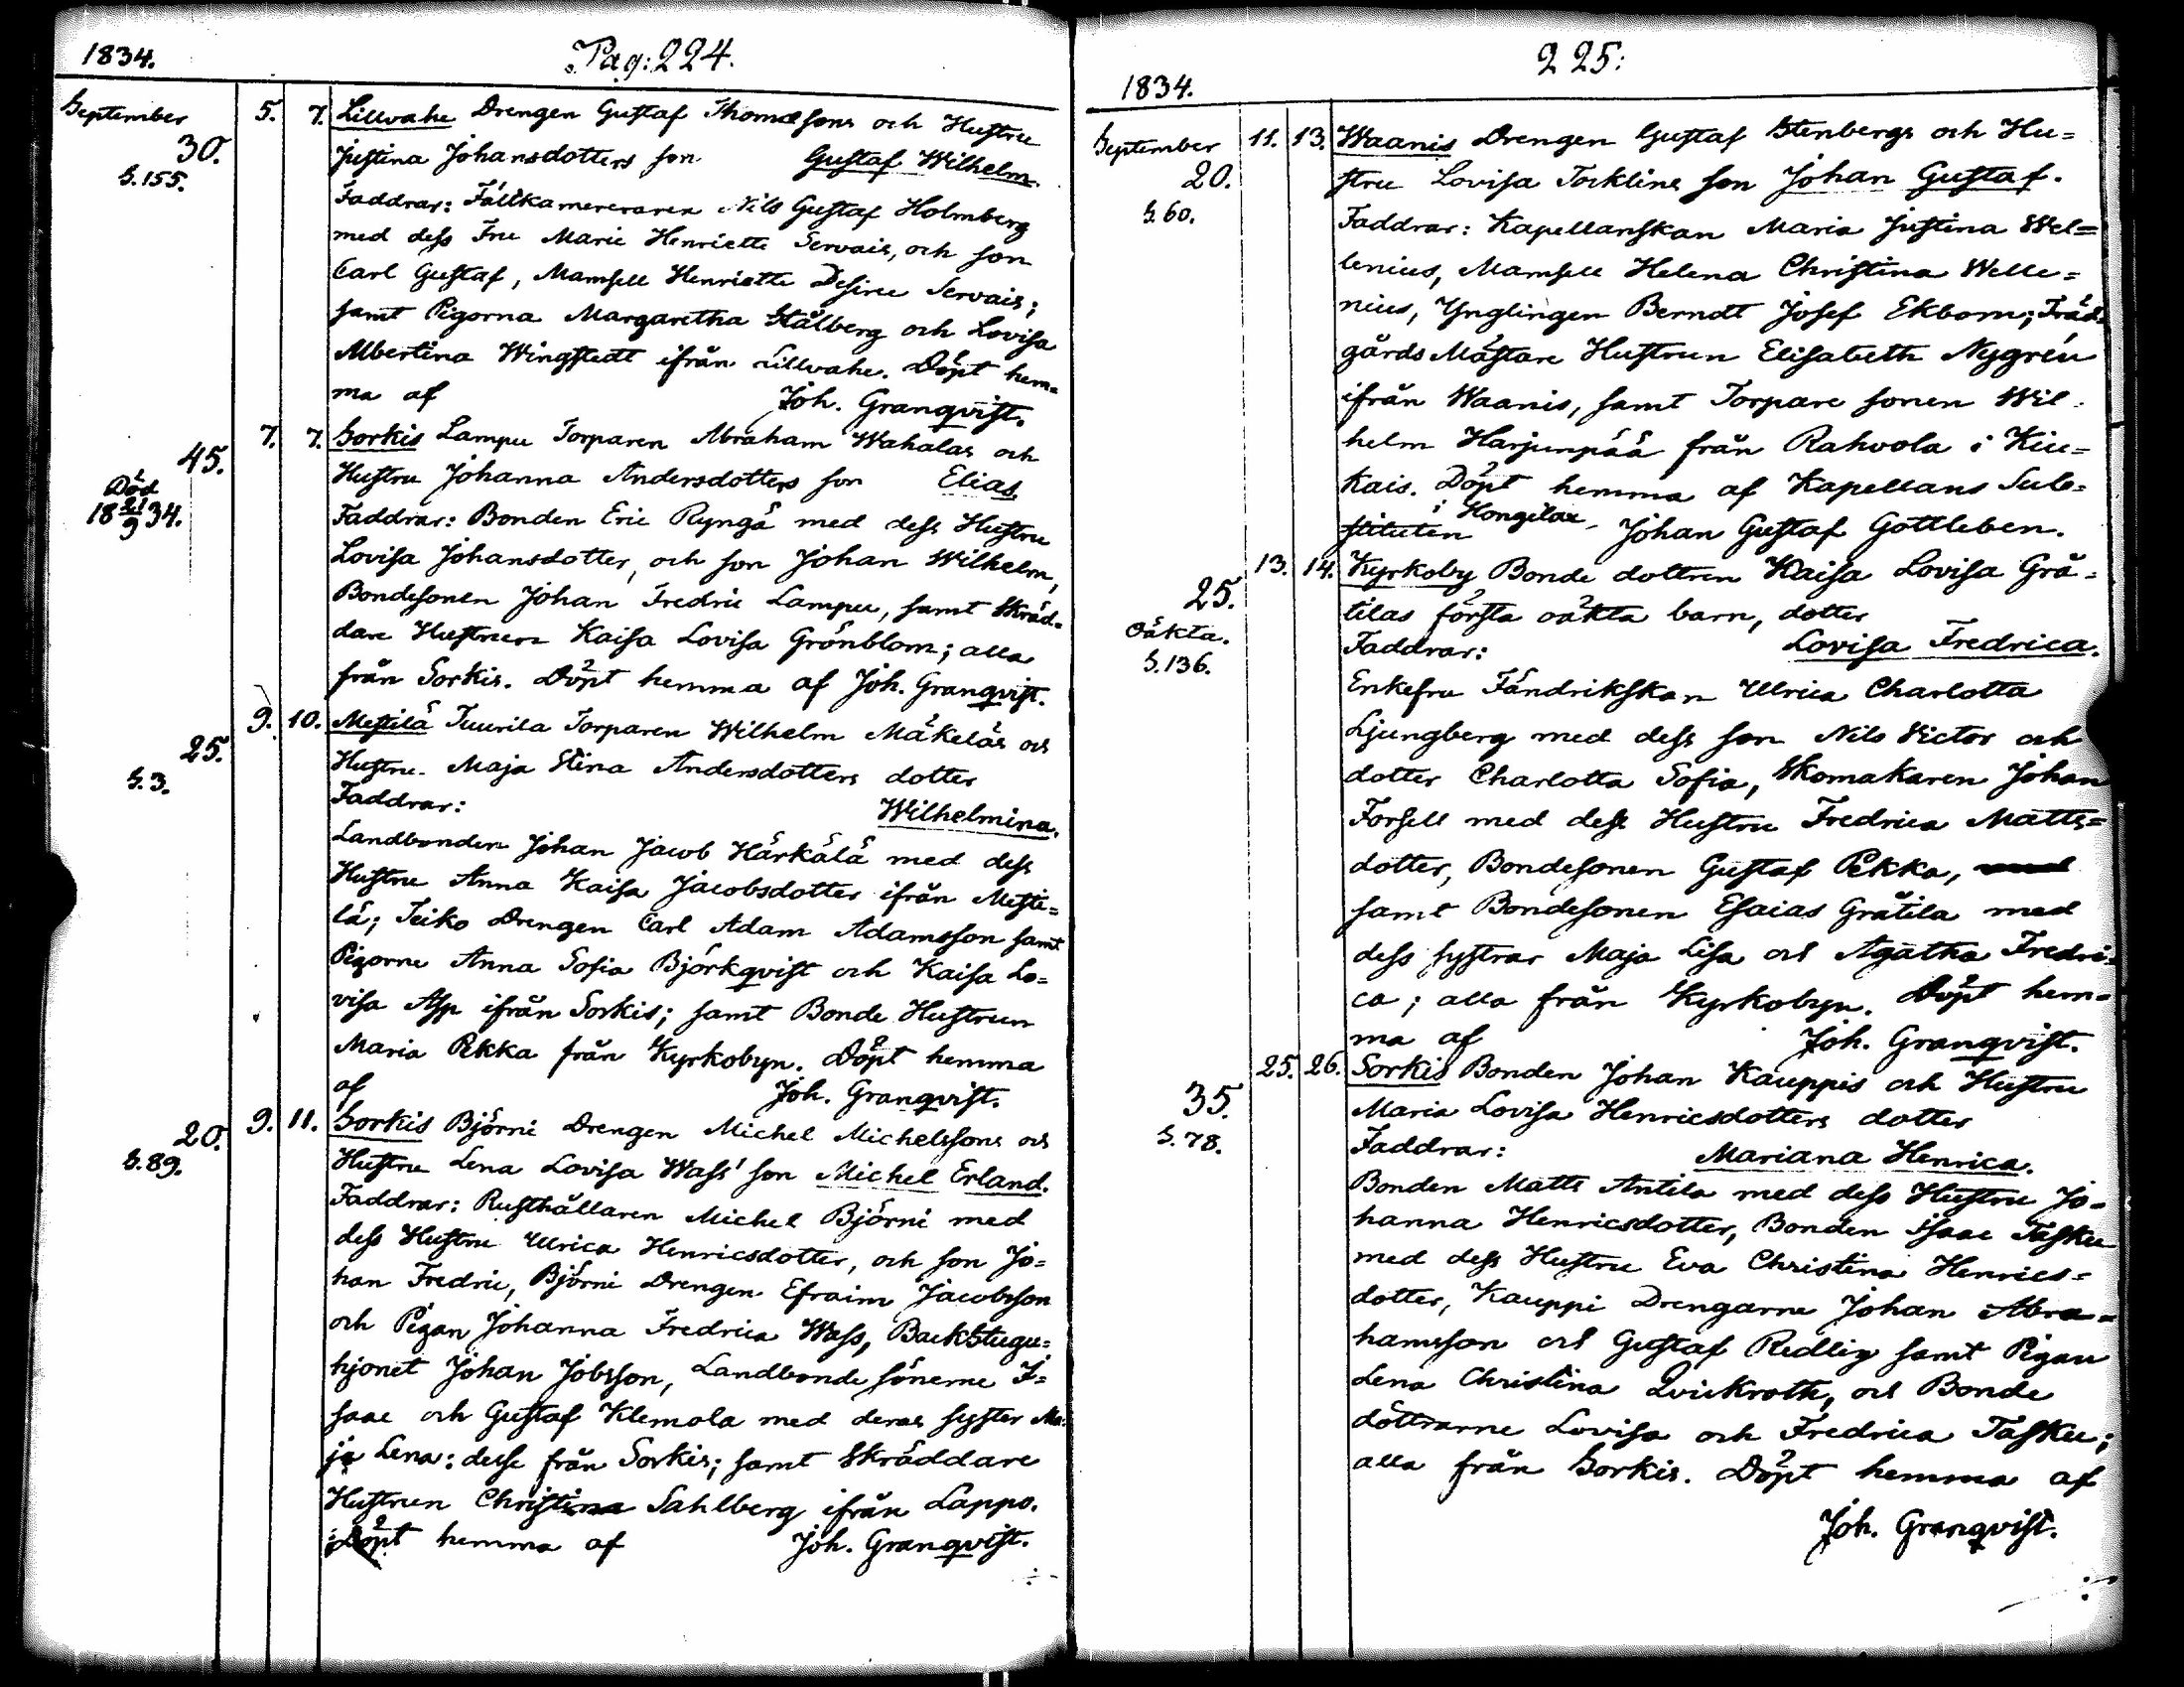 1834.
Pag: 224.
September 5. 7. Lillwahe Drengen Gustaf Thomæsons och Hustru
30. Justina Johansdotters son Gustaf Wilhelm.
S.155.
Faddrar: Fältkamereraren Nils Gustaf Holmberg
med dess Fru Marie Henriette Servais, och son
Carl Gustaf, Mamsell Henriette Desiree Servais;
samt Pigorna Margaretha Stålberg och Lovisa
Albertina Wingstedt ifrån Lillwahe. Döpt hem=
ma af Joh. Granqvist.
45. 7. 7. Sorkis Lampu Torparen Abraham Wahalas och
Hustru Johanna Andersdotters son Elias
Död
18 21/9 34.
Faddrar: Bonden Eric Ryngä med dess Hustru
Lovisa Johansdotter, och son Johan Wilhelm,
Bondesonen Johan Fredric Lampu, samt Skräd=
dare Hustrun Kaisa Lovisa Grönblom; alla
från Sorkis. Döpt hemma af Joh. Granqvist.
25. 9. 10. Mestilä Tuurila Torparen Wilhelm Mäkeläs och
Hustru Maja Stina Andersdotters dotter
S.3.
Faddrar: Wilhelmina.
Landbonden Johan Jacob Härkälä med dess
Hustru Anna Kaisa Jacobsdotter ifrån Mesti=
lä; Teiko Drengen Carl Adam Adamsson samt
Pigorne Anna Sofia Björkqvist och Kaisa Lo=
visa Asp ifrån Sorkis; samt Bonde Hustrun
Maria Pekka från Kyrkobyn. Döpt hemma
af Joh. Granqvist.
20. 9. 11. Sorkis Björni Drengen Michel Michelssons och
S.89. Hustru Lena Lovisa Wass' son Michel Erland.
Faddrar: Rusthållaren Michel Björni med
dess Hustru Ulrica Henricsdotter, och son Jo=
han Fredric, Björni Drengen Efraim Jacobsson
och Pigan Johanna Fredrica Wass, Backstugu=
hjonet Johan Jobsson, Landbonde sönerne I=
saac och Gustaf Klemola med deras syster Ma=
ja Lena: desse från Sorkis; samt Skräddare
Hustrun Christina Sahlberg ifrån Lappo.
Döpt hemma af Joh. Granqvist.
225:
1834.
September 11. 13. Waanis Drengen Gustaf Stenbergs och Hu=
20. stru Lovisa Torklins son Johan Gustaf.
S.60.
Faddrar: Kapellanskan Maria Justina Wel=
lenius, Mamsell Helena Christina Welle=
nius, Ynglingen Berndt Josef Ekbom; Träd=
gårds Mästare Hustrun Elisabeth Nygrén
ifrån Waanis, samt Torpare sonen Wil=
helm Harjunpää från Rahvola i Kiu=
kais. Döpt hemma af Kapellans Sub=
stituten i Hongilax, Johan Gustaf Gottleben.
25. 13. 14. Kyrkoby Bonde dottren Kaisa Lovisa Grä=
tilas första oäkta barn, dotter
Oäkta.
S.136.
Faddrar: Lovisa Fredrica.
Enkefru Fändrikskan Ulrica Charlotta
Ljungberg med dess son Nils Victor och
dotter Charlotta Sofia, Skomakaren Johan
Forsell med dess Hustru Fredrica Matts=
dotter, Bondesonen Gustaf Pekka,
samt Bondesonen Esaias Grätila med
dess systrar Maja Lisa och Agatha Fredri=
ca; alla från Kyrkobyn. Döpt hem=
ma af Joh. Granqvist.
35. 25. 26. Sorkis Bonden Johan Kauppis och Hustru
Maria Lovisa Henricsdotters dotter
S.78.
Faddrar: Mariana Henrica.
Bonden Matts Antila med dess Hustru Jo=
hanna Henricsdotter, Bonden Isaac Tasku
med dess Hustru Eva Christina Henrics=
dotter, Kauppi Drengarne Johan Abra=
hamsson och Gustaf Redlig samt Pigan
Lena Christina Qvickroth, och Bonde
döttrarne Lovisa och Fredrica Tasku;
alla från Sorkis. Döpt hemma af
Joh. Granqvist.